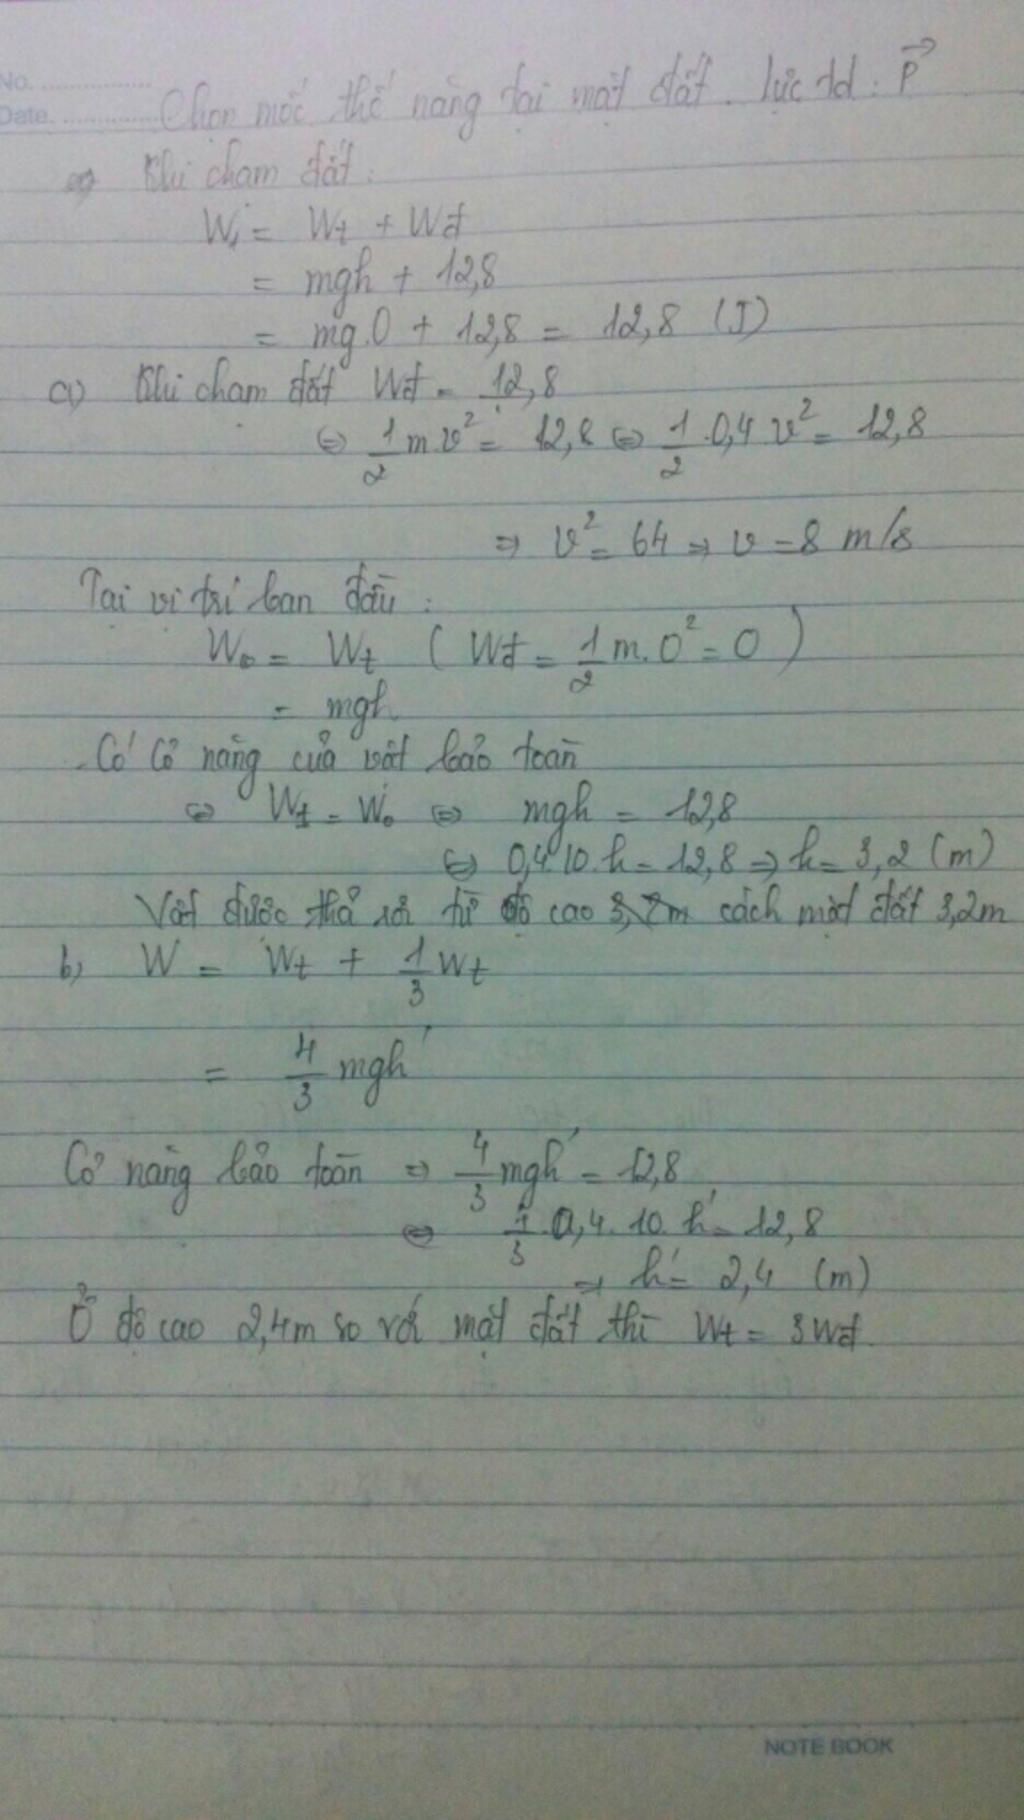 No. ............
Date. ............ Chọn mốc thế năng tại mặt đất. lực td: P⃗
Khi chạm đất:
W₁ = Wt + Wđ
= mgh + 12,8
= mg.0 + 12,8 = 12,8 (J)
a) Khi chạm đất Wđ = 12,8
⇔ 1/2 m.v² = 12,8 ⇔ 1/2 .0,4 v² = 12,8
⇒ v² = 64 ⇒ v = 8 m/s
Tại vị trí ban đầu :
W₀ = Wt ( Wđ = 1/2 m.0² = 0 )
= mgh
Có Cơ năng của vật bảo toàn
⇔ W₁ = W₀ ⇔ mgh = 12,8
⇔ 0,4.10.h = 12,8 ⇒ h = 3,2 (m)
Vật được thả rơi từ độ cao cách mặt đất 3,2m
b) W = Wt + 1/3 Wt
= 4/3 mgh'
Cơ năng bảo toàn ⇒ 4/3 mgh' = 12,8
⇔ 4/3 .0,4.10.h' = 12,8
⇒ h' = 2,4 (m)
Ở độ cao 2,4m so với mặt đất thì Wt = 3Wđ.
NOTE BOOK